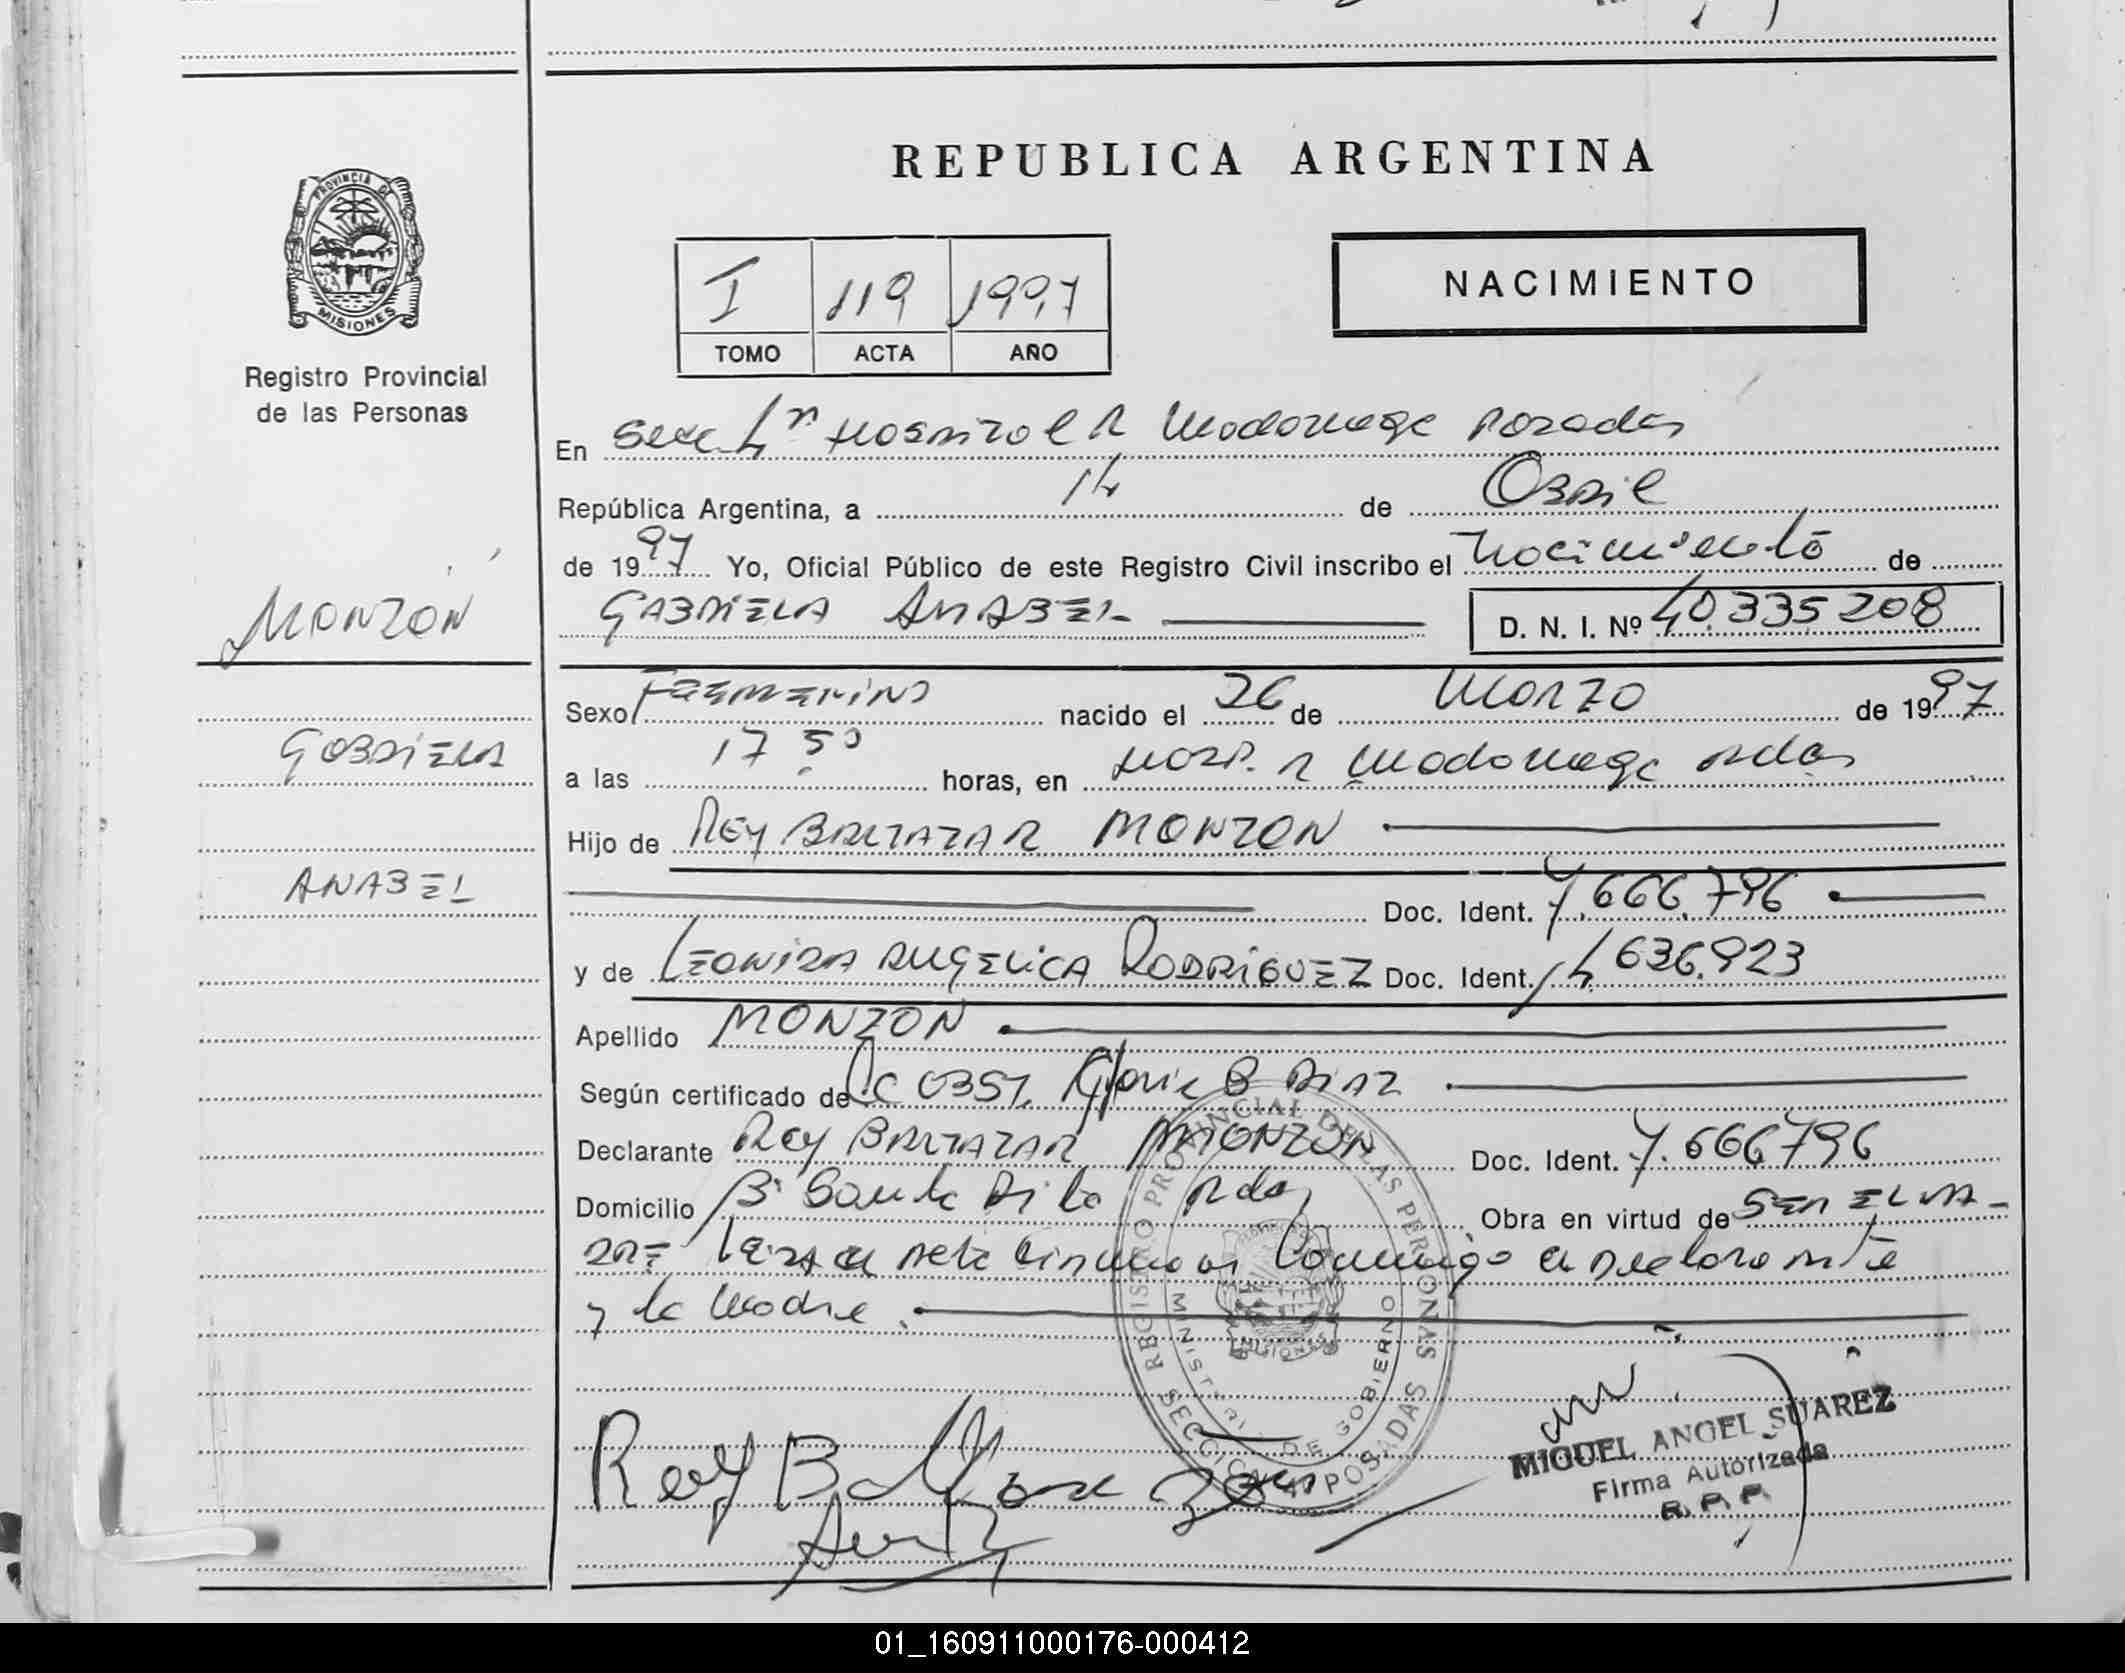 REPUBLICA ARGENTINA
PROVINCIA DE
MISIONES
Registro Provincial
de las Personas
I 119 1997
TOMO ACTA AÑO
NACIMIENTO
En Secc Hospital R Madariaga Posadas
República Argentina, a 14 de Abril
de 1997 Yo, Oficial Público de este Registro Civil inscribo el Nacimiento de
GABRIELA ANABEL D. N. I. Nº 40.335208
MONZON
Sexo Femenino nacido el 26 de Marzo de 1997
GABRIELA
a las 17 50 horas, en Hosp. R Madariaga Pdas
Hijo de REY BALTAZAR MONZON
ANABEL
Doc. Ident. 7.666.796
y de LEONIDA ANGELICA RODRIGUEZ Doc. Ident. 14 636.923
Apellido MONZON
Según certificado de Obst. Gloria B Diaz
Declarante Rey BALTAZAR MONZON Doc. Ident. 7.666796
Domicilio Bº Santa Rita Pdas Obra en virtud de SER EL PA-
DRE Leida el acta firman conmigo el declarante
y la Madre.
REGISTRO PROVINCIAL DE LAS PERSONAS
MINISTERIO DE GOBIERNO
MISIONES
POSADAS
Rey B Monzon
MIGUEL ANGEL SUAREZ
Firma Autorizada
R. P. P.
01_160911000176-000412